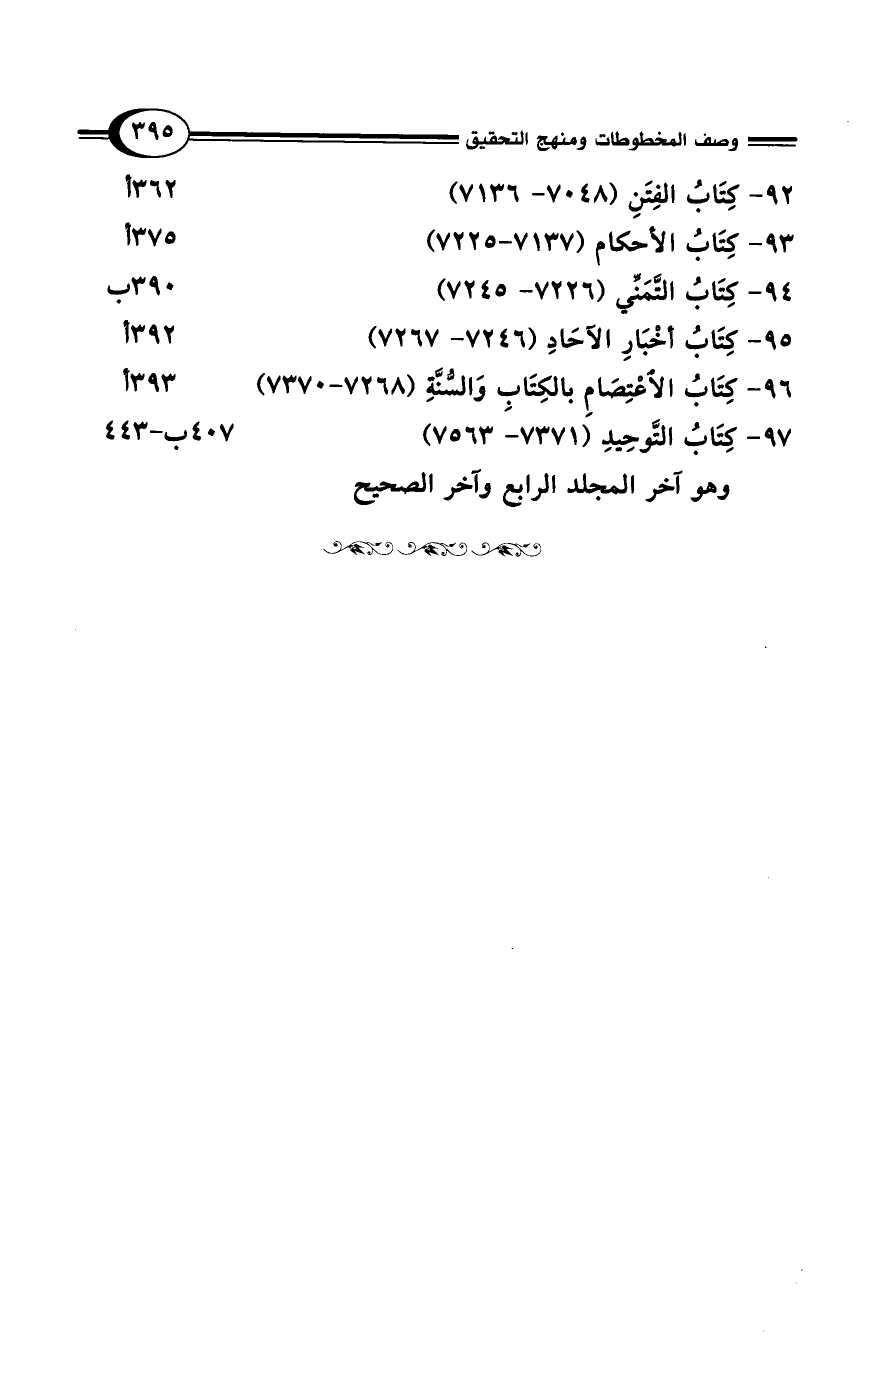 وصف المخطوطات ومنهج التحقيق ٣٩٥
٩٢- كِتَابُ الفِتَنِ (٧٠٤٨- ٧١٣٦) ٣٦٢أ
٩٣- كِتَابُ الأحكام (٧١٣٧-٧٢٢٥) ٣٧٥أ
٩٤- كِتَابُ التَّمَنِّي (٧٢٢٦- ٧٢٤٥) ٣٩٠ب
٩٥- كِتَابُ أَخْبَارِ الآحَادِ (٧٢٤٦- ٧٢٦٧) ٣٩٢أ
٩٦- كِتَابُ الاَعْتِصَامِ بالكِتَابِ وَالسُّنَّةِ (٧٢٦٨-٧٣٧٠) ٣٩٣أ
٩٧- كِتَابُ التَّوحِيدِ (٧٣٧١- ٧٥٦٣) ٤٠٧ب-٤٤٣
وهو آخر المجلد الرابع وآخر الصحيح